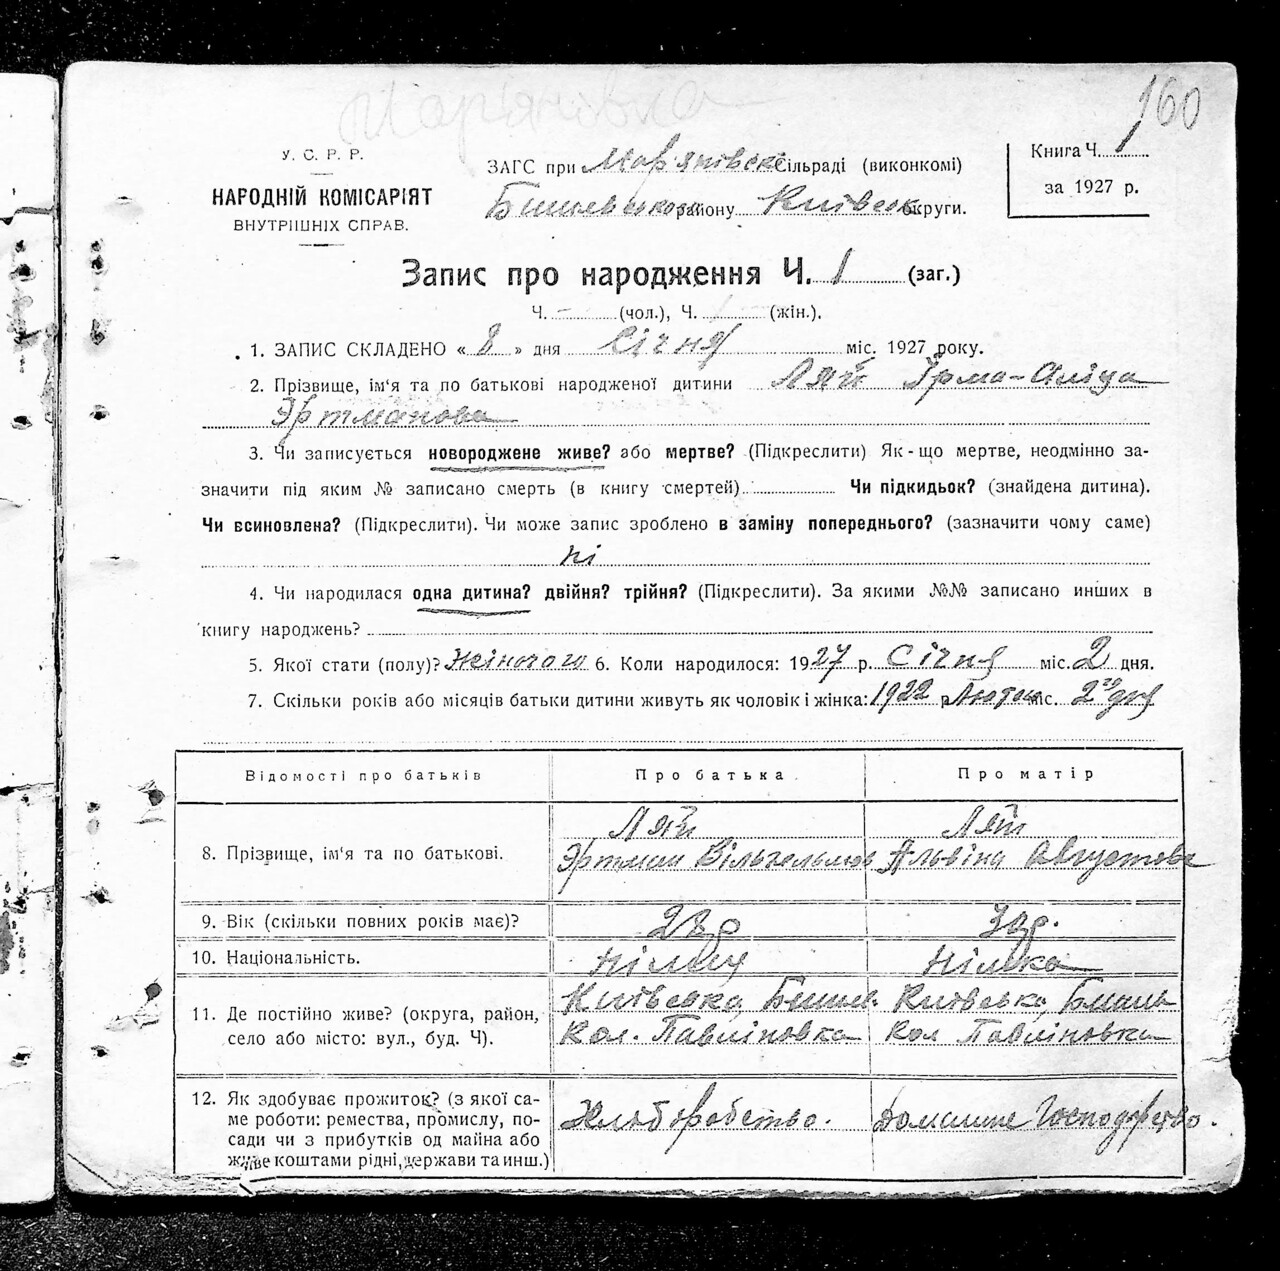 Мар'янівка
160
У. С. Р. Р.
НАРОДНІЙ КОМІСАРІЯТ
ВНУТРІШНІХ СПРАВ.
ЗАГС при Мар'янівск Сільраді (виконкомі)
Бишевському району Київськ округи.
Книга Ч. 1
за 1927 р.
Запис про народження Ч. 1 (заг.)
Ч. – (чол.), Ч. 1 (жін.).
1. ЗАПИС СКЛАДЕНО « 8 » дня Січня міс. 1927 року.
2. Прізвище, ім'я та по батькові народженої дитини Ляй Ірма-Аліца
Эртманова
3. Чи записується новороджене живе? або мертве? (Підкреслити) Як-що мертве, неодмінно за-
значити під яким № записано смерть (в книгу смертей) Чи підкидьок? (знайдена дитина).
Чи всиновлена? (Підкреслити). Чи може запис зроблено в заміну попереднього? (зазначити чому саме)
ні
4. Чи народилася одна дитина? двійня? трійня? (Підкреслити). За якими №№ записано инших в
книгу народжень?
5. Якої стати (полу)? Жіночого 6. Коли народилося: 1927 р. Січня міс. 2 дня.
7. Скільки років або місяців батьки дитини живуть як чоловік і жінка: 1922 р. Лютом міс. 2го дня
Відомості про батьків Про батька Про матір
8. Прізвище, ім'я та по батькові.
Ляй
Эртман Вільгельмов
Ляй
Альвіна Августова
9. Вік (скільки повних років має)? 28 р 30 р.
10. Національність. Німец Німка
11. Де постійно живе? (округа, район,
село або місто: вул., буд. Ч).
Київська, Бишев.
Кол. Павліновка
Київська, Бишів
Кол Павліновка
12. Як здобуває прожиток? (з якої са-
ме роботи: ремества, промислу, по-
сади чи з прибутків од майна або
живе коштами рідні, держави та инш.)
Хліборобство.
Домашне Господарство.